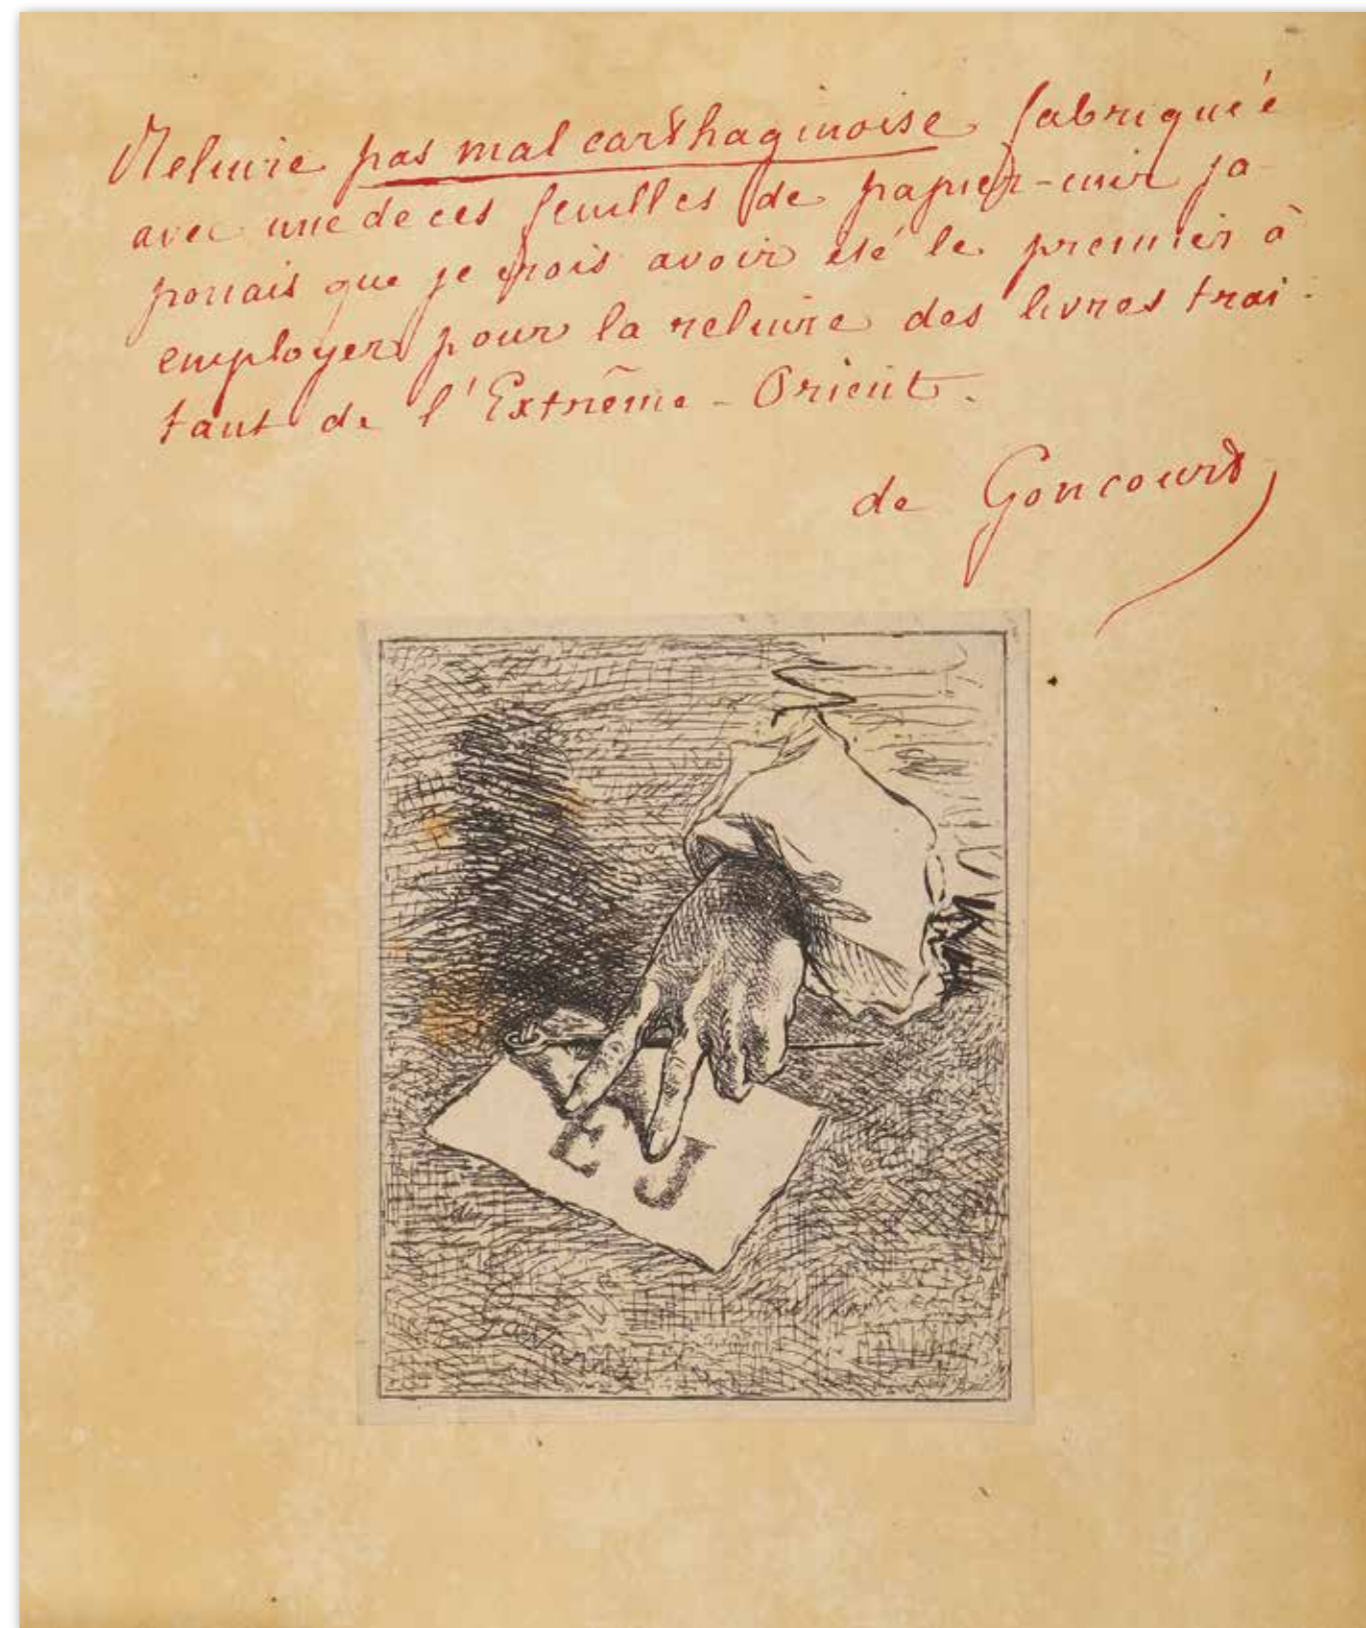 Reliure pas mal carthaginoise fabriquée
avec une de ces feuilles de papier-cuir ja-
ponais que je crois avoir été le premier à
employer pour la reliure des livres trai-
tant de l'Extrême-Orient.
de Goncourt
E J
Gavarni